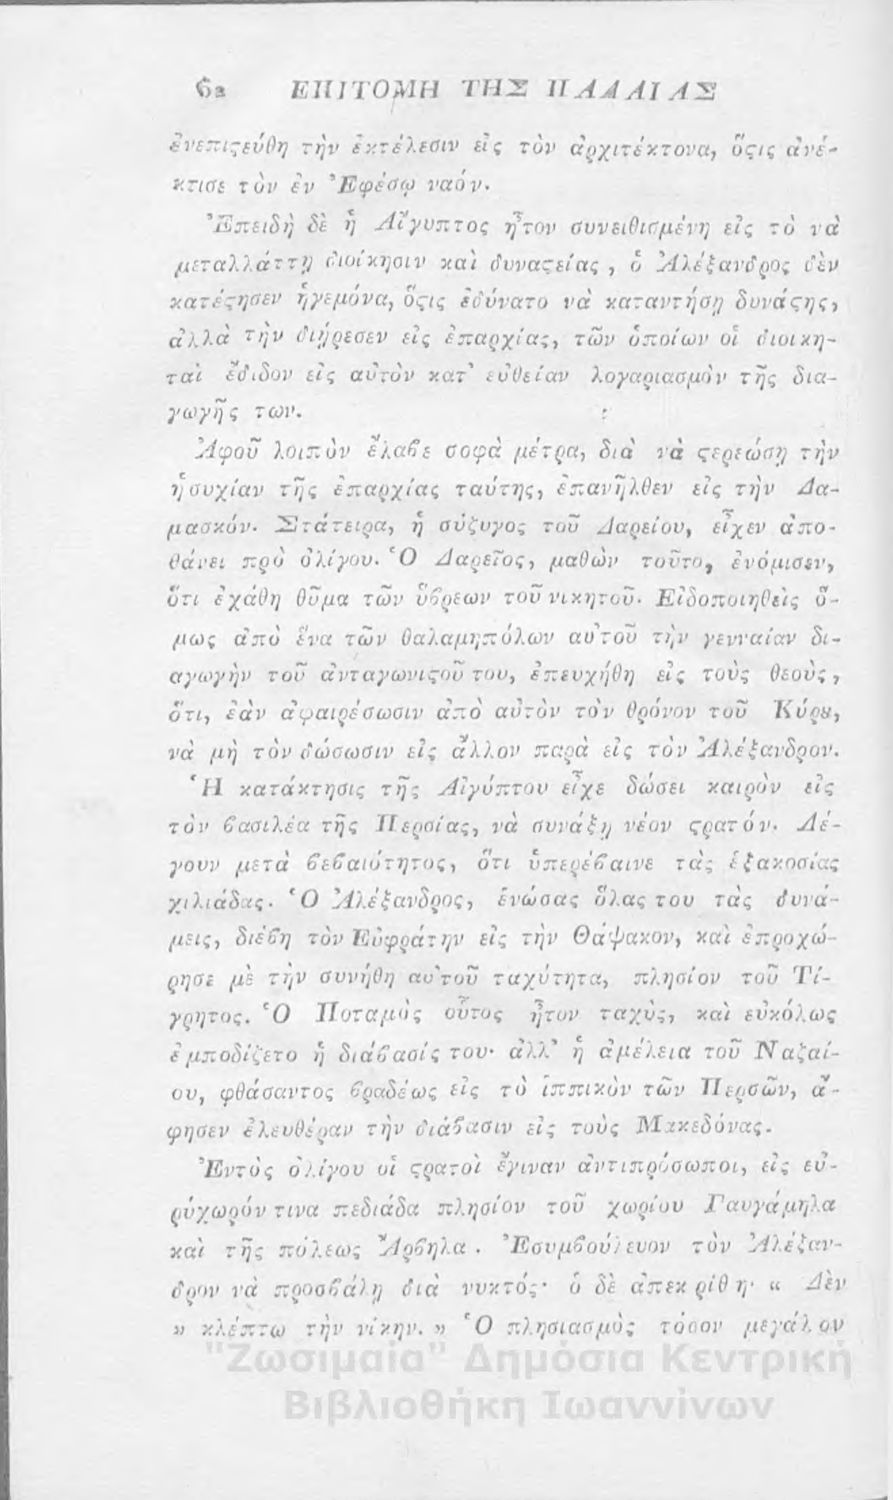 62 ΕΠΙΤΟΜΗ ΤΗΣ ΠΑΛΑΙΑΣ
ἐνεπιϛεύθη τὴν ἐκτέλεσιν εἰς τὸν ἀρχιτέκτονα, ὅϛις ἀνέ-
κτισε τὸν ἐν Ἐφέσῳ ναόν.
Ἐπειδὴ δὲ ἡ Αἴγυπτος ἦτον συνειθισμένη εἰς τὸ νὰ
μεταλλάττῃ διοίκησιν καὶ δυναϛείας, ὁ Ἀλέξανδρος δὲν
κατέϛησεν ἡγεμόνα, ὅϛις ἐδύνατο νὰ καταντήσῃ δυνάϛης,
ἀλλὰ τὴν διῄρεσεν εἰς ἐπαρχίας, τῶν ὁποίων οἱ διοικη-
ταὶ ἔδιδον εἰς αὐτὸν κατ' εὐθείαν λογαριασμὸν τῆς δια-
γωγῆς των.
Ἀφοῦ λοιπὸν ἔλαβε σοφὰ μέτρα, διὰ νὰ ϛερεώσῃ τὴν
ἡσυχίαν τῆς ἐπαρχίας ταύτης, ἐπανῆλθεν εἰς τὴν Δα-
μασκόν. Στάτειρα, ἡ σύζυγος τοῦ Δαρείου, εἶχεν ἀπο-
θάνει πρὸ ὀλίγου. Ὁ Δαρεῖος, μαθὼν τοῦτο, ἐνόμισεν,
ὅτι ἐχάθη θῦμα τῶν ὕβρεων τοῦ νικητοῦ. Εἰδοποιηθεὶς ὅ-
μως ἀπὸ ἕνα τῶν θαλαμηπόλων αὐτοῦ τὴν γενναίαν δι-
αγωγὴν τοῦ ἀνταγωνιϛοῦ του, ἐπευχήθη εἰς τοὺς θεοὺς,
ὅτι, ἐὰν ἀφαιρέσωσιν ἀπὸ αὐτὸν τὸν θρόνον τοῦ Κύρȣ,
νὰ μὴ τὸν δώσωσιν εἰς ἄλλον παρὰ εἰς τὸν Ἀλέξανδρον.
Ἡ κατάκτησις τῆς Αἰγύπτου εἶχε δώσει καιρὸν εἰς
τὸν βασιλέα τῆς Περσίας, νὰ συνάξῃ νέον ϛρατόν. Λέ-
γουν μετὰ βεβαιότητος, ὅτι ὑπερέβαινε τὰς ἑξακοσίας
χιλιάδας. Ὁ Ἀλέξανδρος, ἑνώσας ὅλας του τὰς δυνά-
μεις, διέβη τὸν Εὐφράτην εἰς τὴν Θάψακον, καὶ ἐπροχώ-
ρησε μὲ τὴν συνήθη αὐτοῦ ταχύτητα, πλησίον τοῦ Τί-
γρητος. Ὁ Ποταμὸς οὗτος ἦτον ταχὺς, καὶ εὐκόλως
ἐμποδίζετο ἡ διάβασίς του· ἀλλ' ἡ ἀμέλεια τοῦ Ναζαί-
ου, φθάσαντος βραδέως εἰς τὸ ἱππικὸν τῶν Περσῶν, ἄ-
φησεν ἐλευθέραν τὴν διάβασιν εἰς τοὺς Μακεδόνας.
Ἐντὸς ὀλίγου οἱ ϛρατοὶ ἔγιναν ἀντιπρόσωποι, εἰς εὐ-
ρύχωρόν τινα πεδιάδα πλησίον τοῦ χωρίου Γαυγάμηλα
καὶ τῆς πόλεως Ἄρβηλα. Ἐσυμβούλευον τὸν Ἀλέξαν-
δρον νὰ προσβάλῃ διὰ νυκτός· ὁ δὲ ἀπεκρίθη· « Δὲν
» κλέπτω τὴν νίκην. » Ὁ πλησιασμὸς τόσον μεγάλον
"Ζωσιμαία" Δημόσια Κεντρική
Βιβλιοθήκη Ιωαννίνων